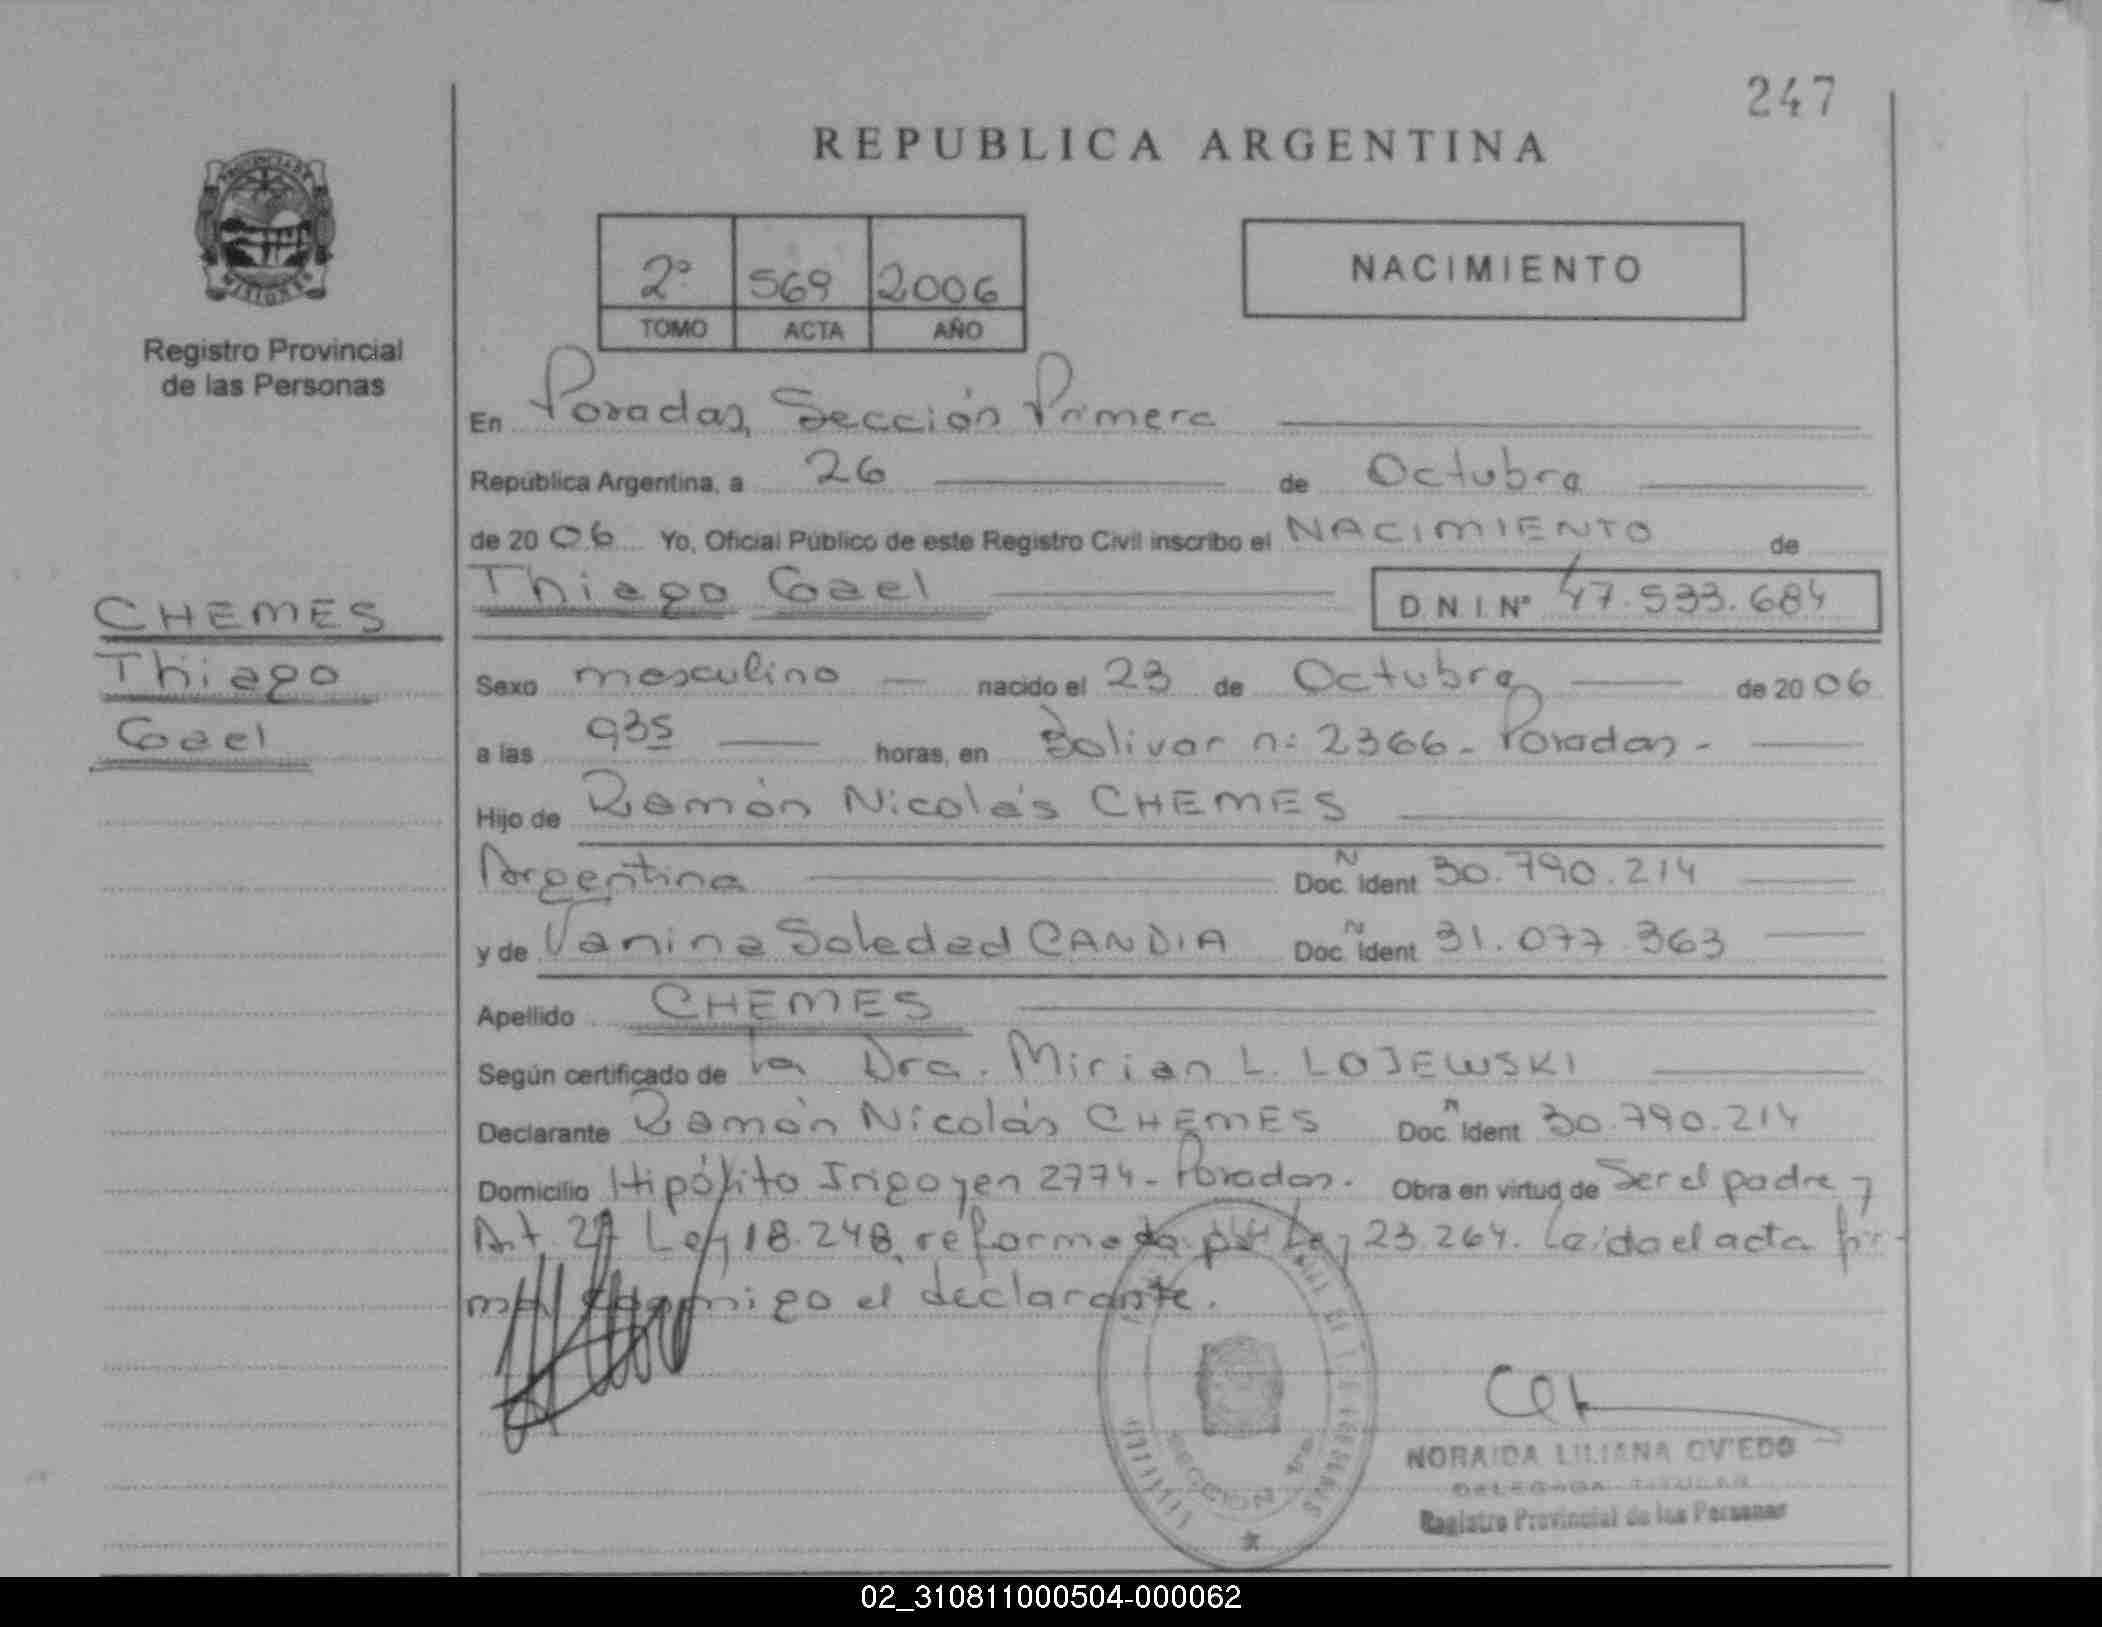 247
REPUBLICA ARGENTINA
PROVINCIA DE
MISIONES
Registro Provincial
de las Personas
2º 569 2006
TOMO ACTA AÑO
NACIMIENTO
En Posadas, Sección Primera
República Argentina, a 26 de Octubre
de 2006 Yo, Oficial Público de este Registro Civil inscribo el NACIMIENTO de
Thiago Gael D.N.I.Nº 47.533.684
CHEMES
Thiago
Gael
Sexo masculino nacido el 23 de Octubre de 2006
a las 935 horas, en Bolivar nº 2366 - Posadas -
Hijo de Ramón Nicolás CHEMES
Argentina Doc. Ident N 30.790.214
y de Vanina Soledad CANDIA Doc. Ident N 31.077.363
Apellido CHEMES
Según certificado de la Dra. Mirian L. LOJEWSKI
Declarante Ramón Nicolás CHEMES Doc. Ident n 30.790.214
Domicilio Hipólito Irigoyen 2774 - Posadas. Obra en virtud de Ser el padre y
Art. Ley 18.248, reformada por Ley 23.264. Leída el acta fir-
ma conmigo el declarante.
SECCION
NORAIDA LILIANA OVIEDO
DELEGADA TITULAR
Registro Provincial de las Personas
02_310811000504-000062